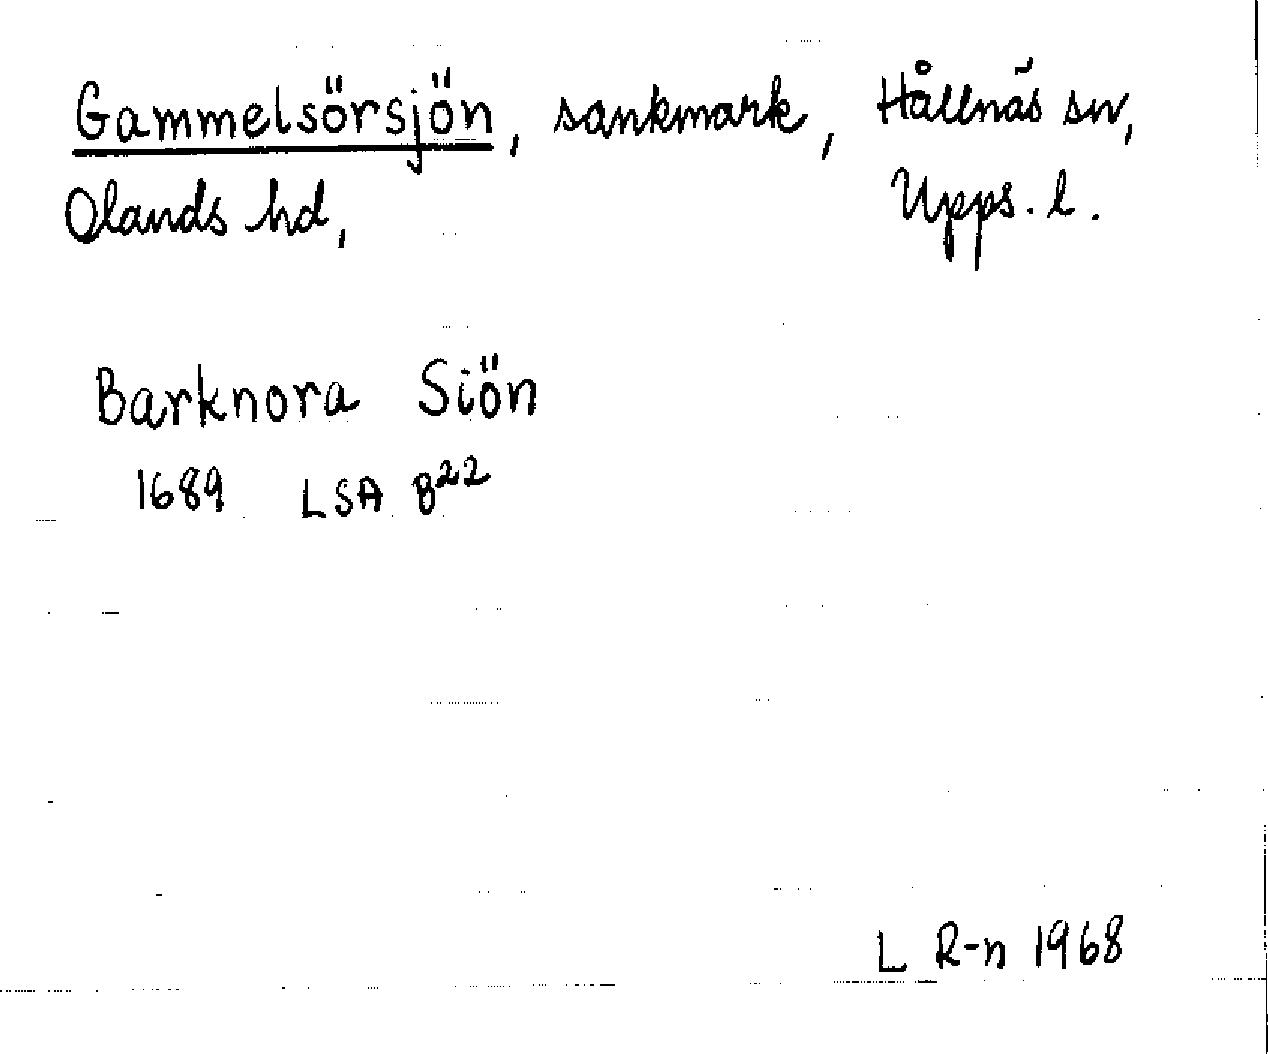 Gammelsörsjön, sankmark, Hållnäs sn,
Olands hd, Upps. l.
Barknora Siön
1689 LSA B22
L R-n 1968